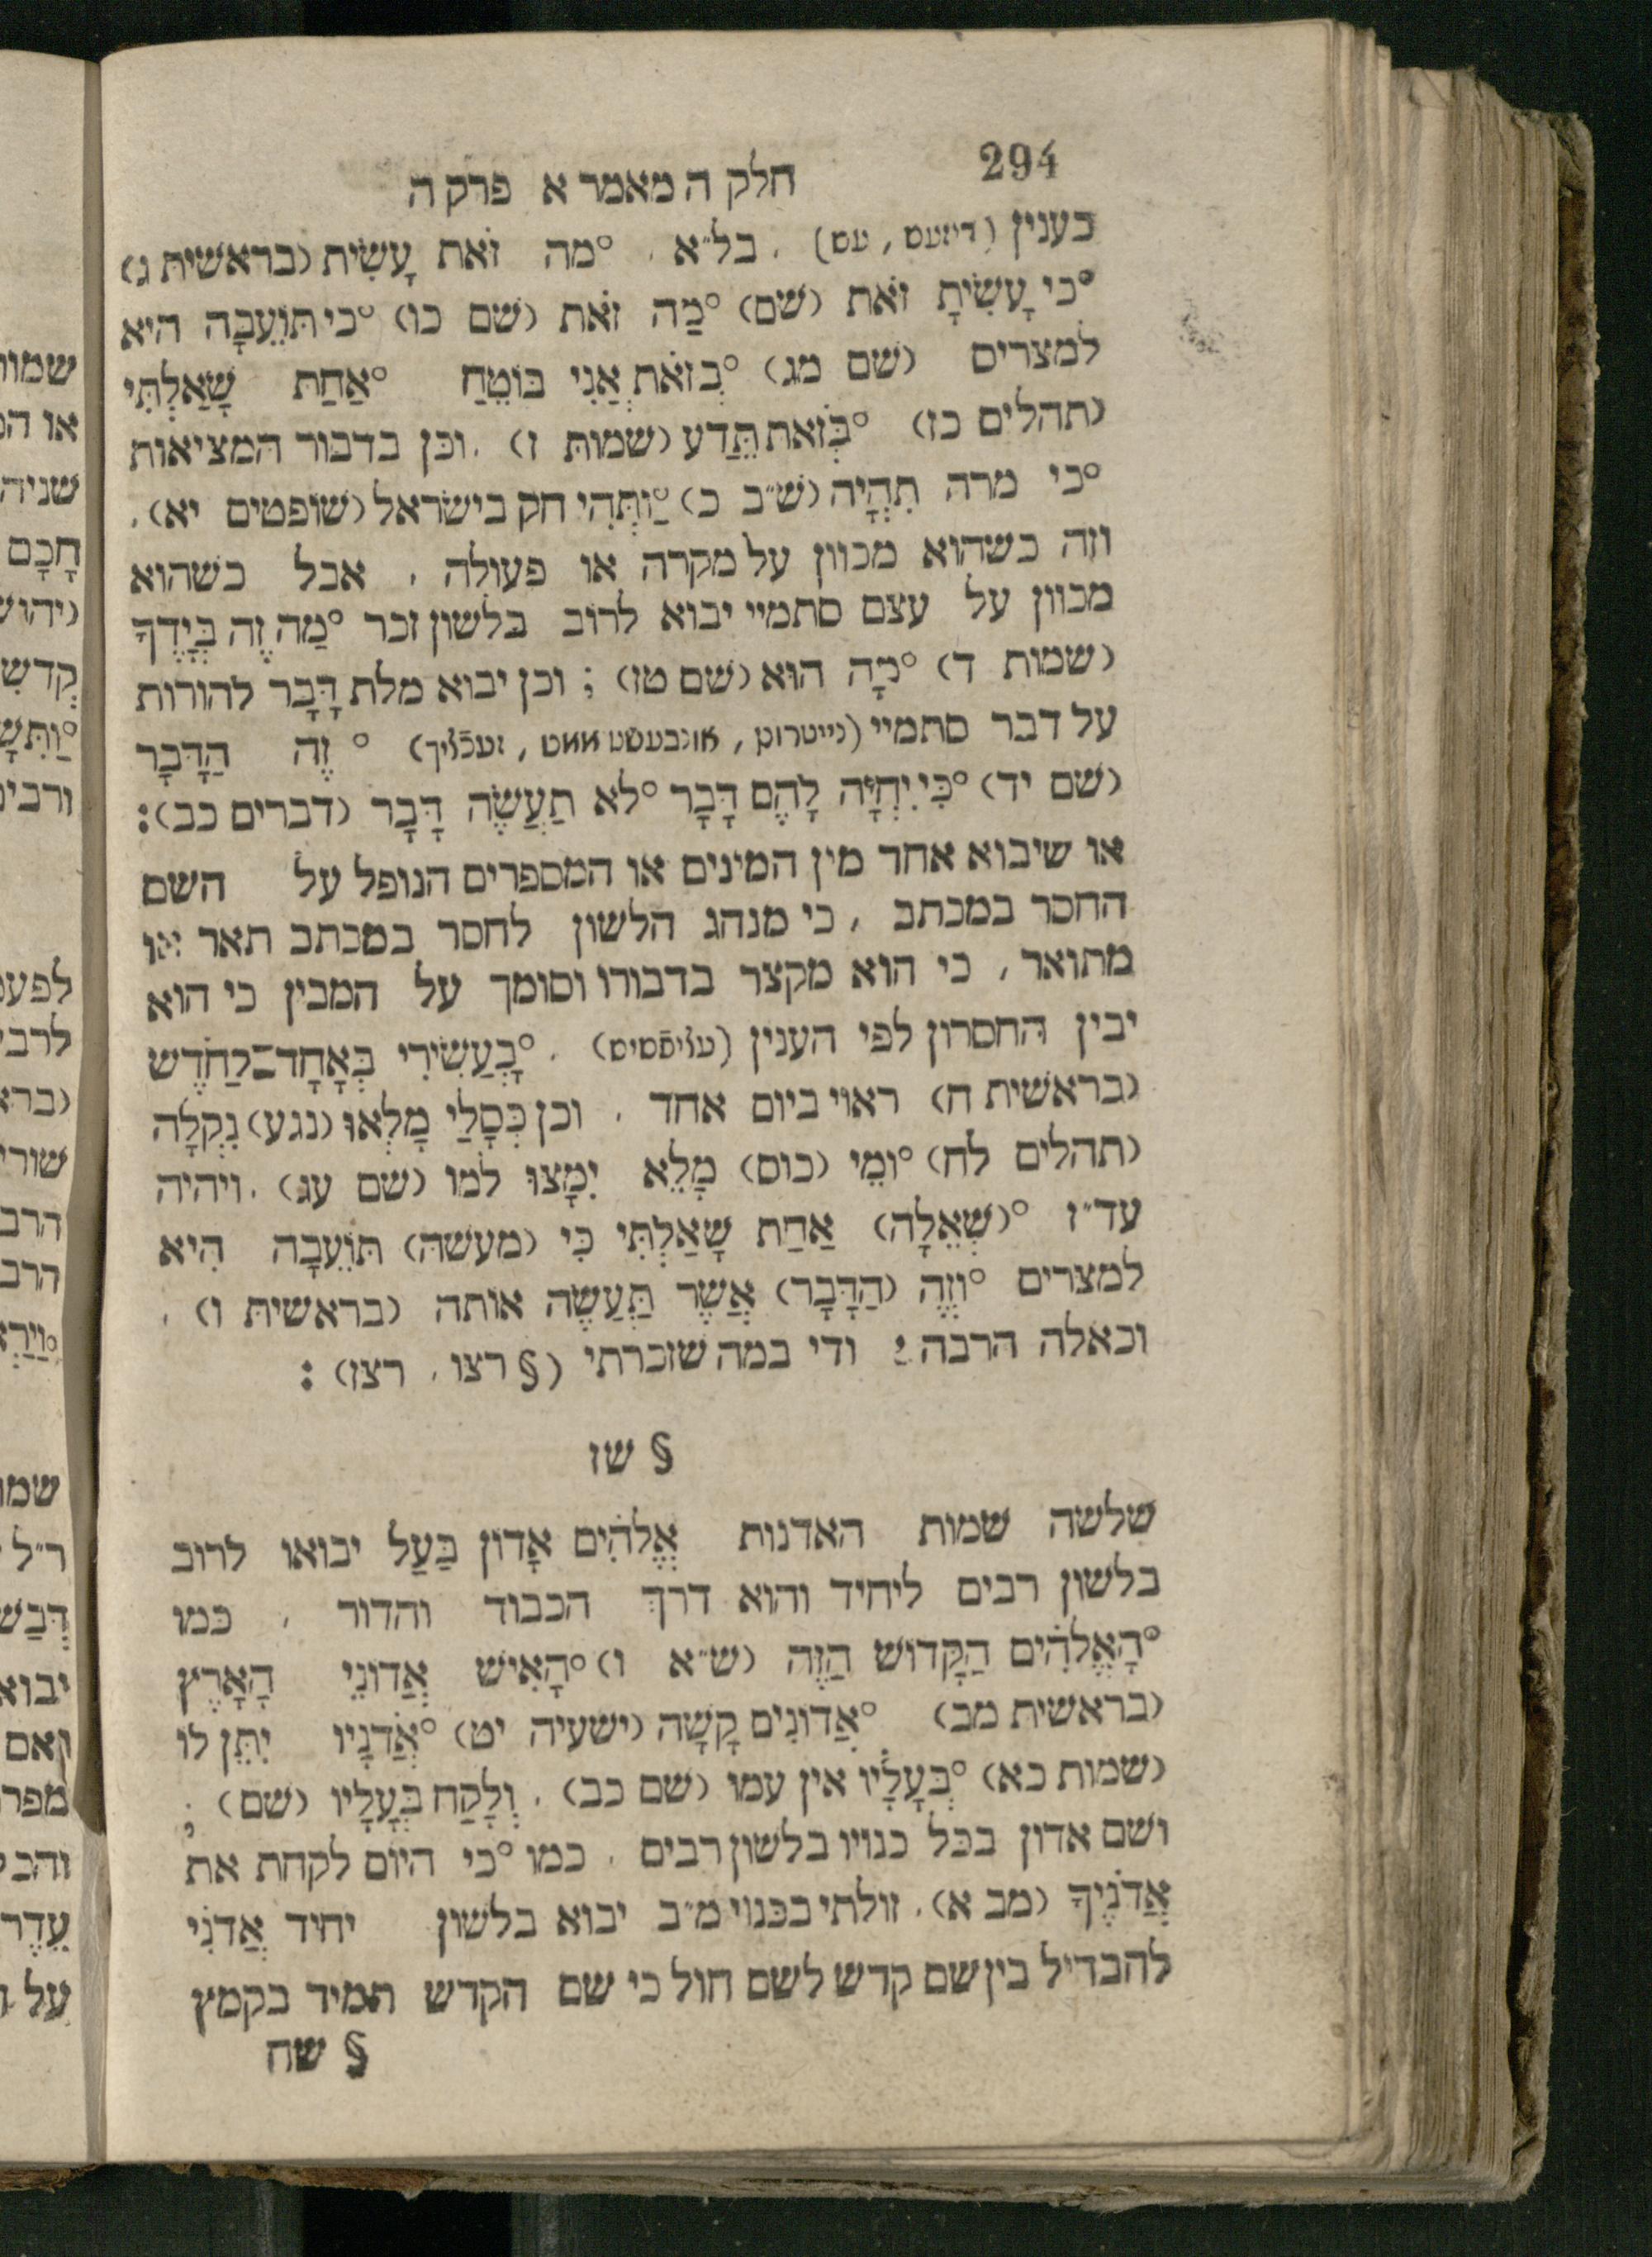 294
חלק ה מאמר א פרק ה
בענין (דיזעס, עס) . בל״א . °מה זֹאת עָשִׂית (בראשית ג)
°כי עָשִׂיתָ זֹאת (שם) °מַה זֹאת (שם כו) °כי תוֹעֵבָה היא
למצרים (שם מג) °בְזֹאת אֲנִי בּוֹטֵחַ °אַחַת שָׁאַלְתִּי
(תהלים כז) °בְּזֹאת תֵּדַע (שמות ז) . וכן בדבור המציאות
°כי מרה תִהְיֶה (ש״ב כ) °וַתְּהִי חק בישראל (שופטים יא) .
וזה כשהוא מכוון על מקרה או פעולה , אבל כשהוא
מכוון על עצם סתמיי יבוא לרוב בלשון זכר °מַה זֶה בְּיָדֶךָ
(שמות ד) °מָה הוּא (שם טז) ; וכן יבוא מלת דָּבָר להורות
על דבר סתמיי (נייטרום, אונבעשטאממט, זעכֿליך) ° זֶה הַדָּבָר
(שם יד) °כִּי יִהְיֶה לָהֶם דָּבָר °לא תַעֲשֶׂה דָּבָר (דברים כב) :
או שיבוא אחד מין המינים או המספרים הנופל על השם
החסר במכתב , כי מנהג הלשון לחסר במכתב תאר או
מתואר , כי הוא מקצר בדבורו וסומך על המבין כי הוא
יבין החסרון לפי הענין (עליפסיס) . °בָּעֲשִׂירִי בְּאֶחָד־לַחֹדֶשׁ
(בראשית ח) ראוי ביום אחד . וכן כְּסָלַי מָלְאוּ (נגע) נִקְלֶה
(תהלים לח) °וּמֵי (כוס) מָלֵא יִמָּצוּ למו (שם עג) . ויהיה
עד״ז °(שְׁאֵלָה) אַחַת שָׁאַלְתִּי כִּי (מעשה) תּוֹעֵבָה הִיא
למצרים °וְזֶה (הַדָּבָר) אֲשֶׁר תַּעֲשֶׂה אותה (בראשית ו) .
וכאלה הרבה . ודי במה שזכרתי (§ רצו , רצז) :
§ שז
שלשה שמות האדנות אֱלֹהִים אָדוֹן בַּעַל יבואו לרוב
בלשון רבים ליחיד והוא דרך הכבוד והדור . כמו
°הָאֱלֹהִים הַקָּדוֹשׁ הַזֶּה (ש״א ו) °הָאִישׁ אֲדוֹנֵי הָאָרֶץ
(בראשית מב) °אֲדוֹנִים קָשֶׁה (ישעיה יט) °אֲדֹנָיו יִתֵּן לו
(שמות כא) °בְּעָלָיו אין עמו (שם כב) . וְלָקַח בְּעָלָיו (שם) ;
ושם אדון בכל כנויו בלשון רבים . כמו °כי היום לקחת את
אֲדֹנֶיךָ (מב א) . זולתי בכנוי מ״ב יבוא בלשון יחיד אֲדֹנִי
להבדיל בין שם קדש לשם חול כי שם הקדש תמיד בקמץ
§ שח